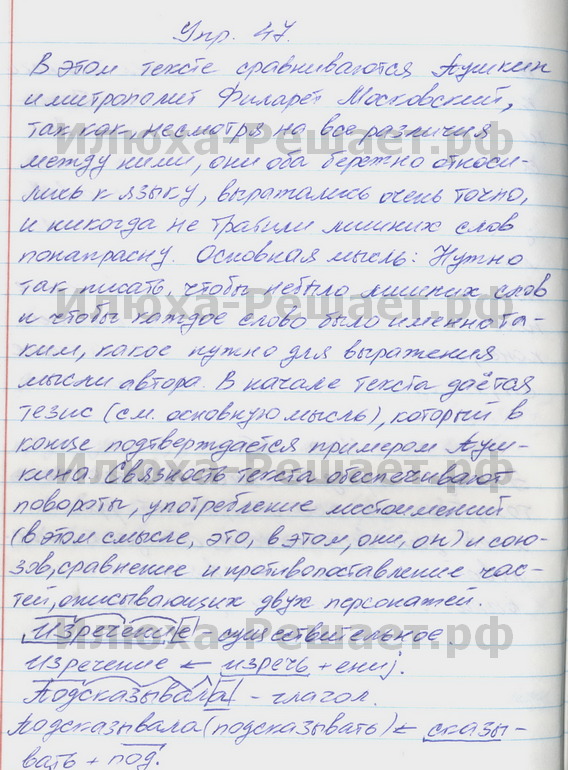 Упр. 47.
В этом тексте сравниваются Пушкин
и митрополит Филарет Московский,
так как, несмотря на все различия
между ними, они оба бережно относи-
лись к языку, выражались очень точно,
и никогда не травили лишних слов
понапрасну. Основная мысль: Нужно
так писать, чтобы небыло лишних слов
и чтобы каждое слово было именно та-
ким, какое нужно для выражения
мысли автора. В начале текста даётся
тезис (см. основную мысль), который в
конце подтверждается примером Пуш-
кина. Связность текста обеспечивают
повороты, употребление местоимений
(в этом смысле, это, в этом, они, он) и сою-
зов, сравнение и противопоставление час-
тей, описывающих двух персонажей.
Изречение - существительное.
Изречение ← изречь + ениj.
Подсказывала - глагол.
Подсказывала (подсказывать) ← сказы-
вать + под.
Илюха-Решает.рф
Илюха-Решает.рф
Илюха-Решает.рф
Илюха-Решает.рф